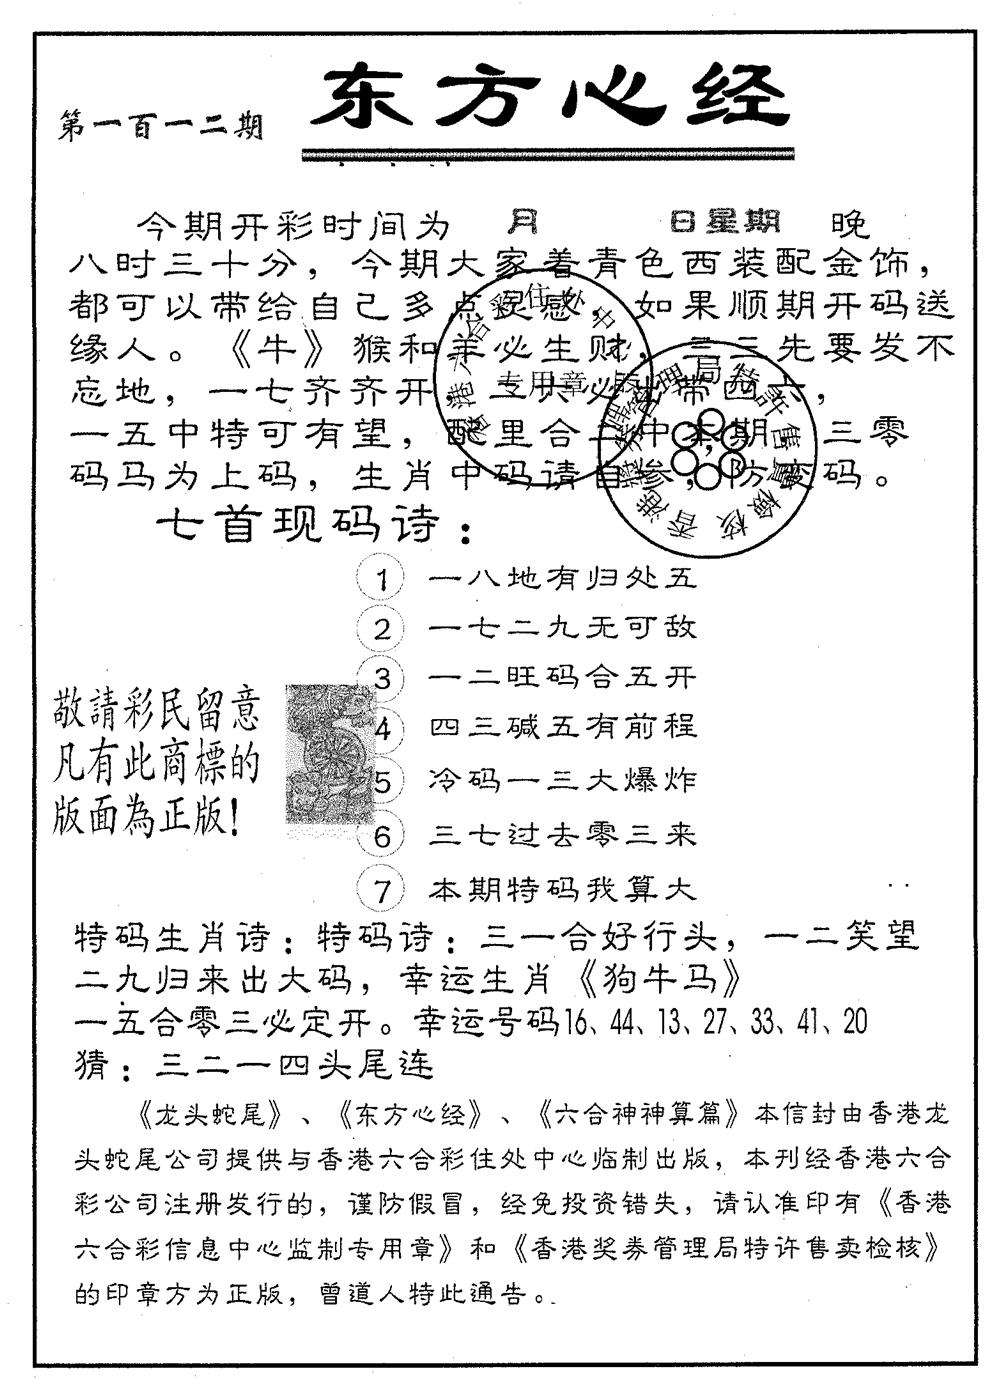 东方心经
第一百一二期
今期开彩时间为 月 日星期 晚
八时三十分，今期大家着青色西装配金饰，
都可以带给自己多点灵感，如果顺期开码送
缘人。《牛》猴和羊必生财，三三先要发不
忘地，一七齐齐开，二六必出带四六，
一五中特可有望，配里合一中本期，三零
码马为上码，生肖中码请自参，防 码。
专用章
七首现码诗：
1 一八地有归处五
2 一七二九无可敌
3 一二旺码合五开
4 四三碱五有前程
5 冷码一三大爆炸
6 三七过去零三来
7 本期特码我算大
敬請彩民留意
凡有此商標的
版面為正版！
特码生肖诗：特码诗：三一合好行头，一二笑望
二九归来出大码，幸运生肖《狗牛马》
一五合零三必定开。幸运号码16、44、13、27、33、41、20
猜：三二一四头尾连
《龙头蛇尾》、《东方心经》、《六合神神算篇》本信封由香港龙
头蛇尾公司提供与香港六合彩住处中心临制出版，本刊经香港六合
彩公司注册发行的，谨防假冒，经免投资错失，请认准印有《香港
六合彩信息中心监制专用章》和《香港奖券管理局特许售卖检核》
的印章方为正版，曾道人特此通告。